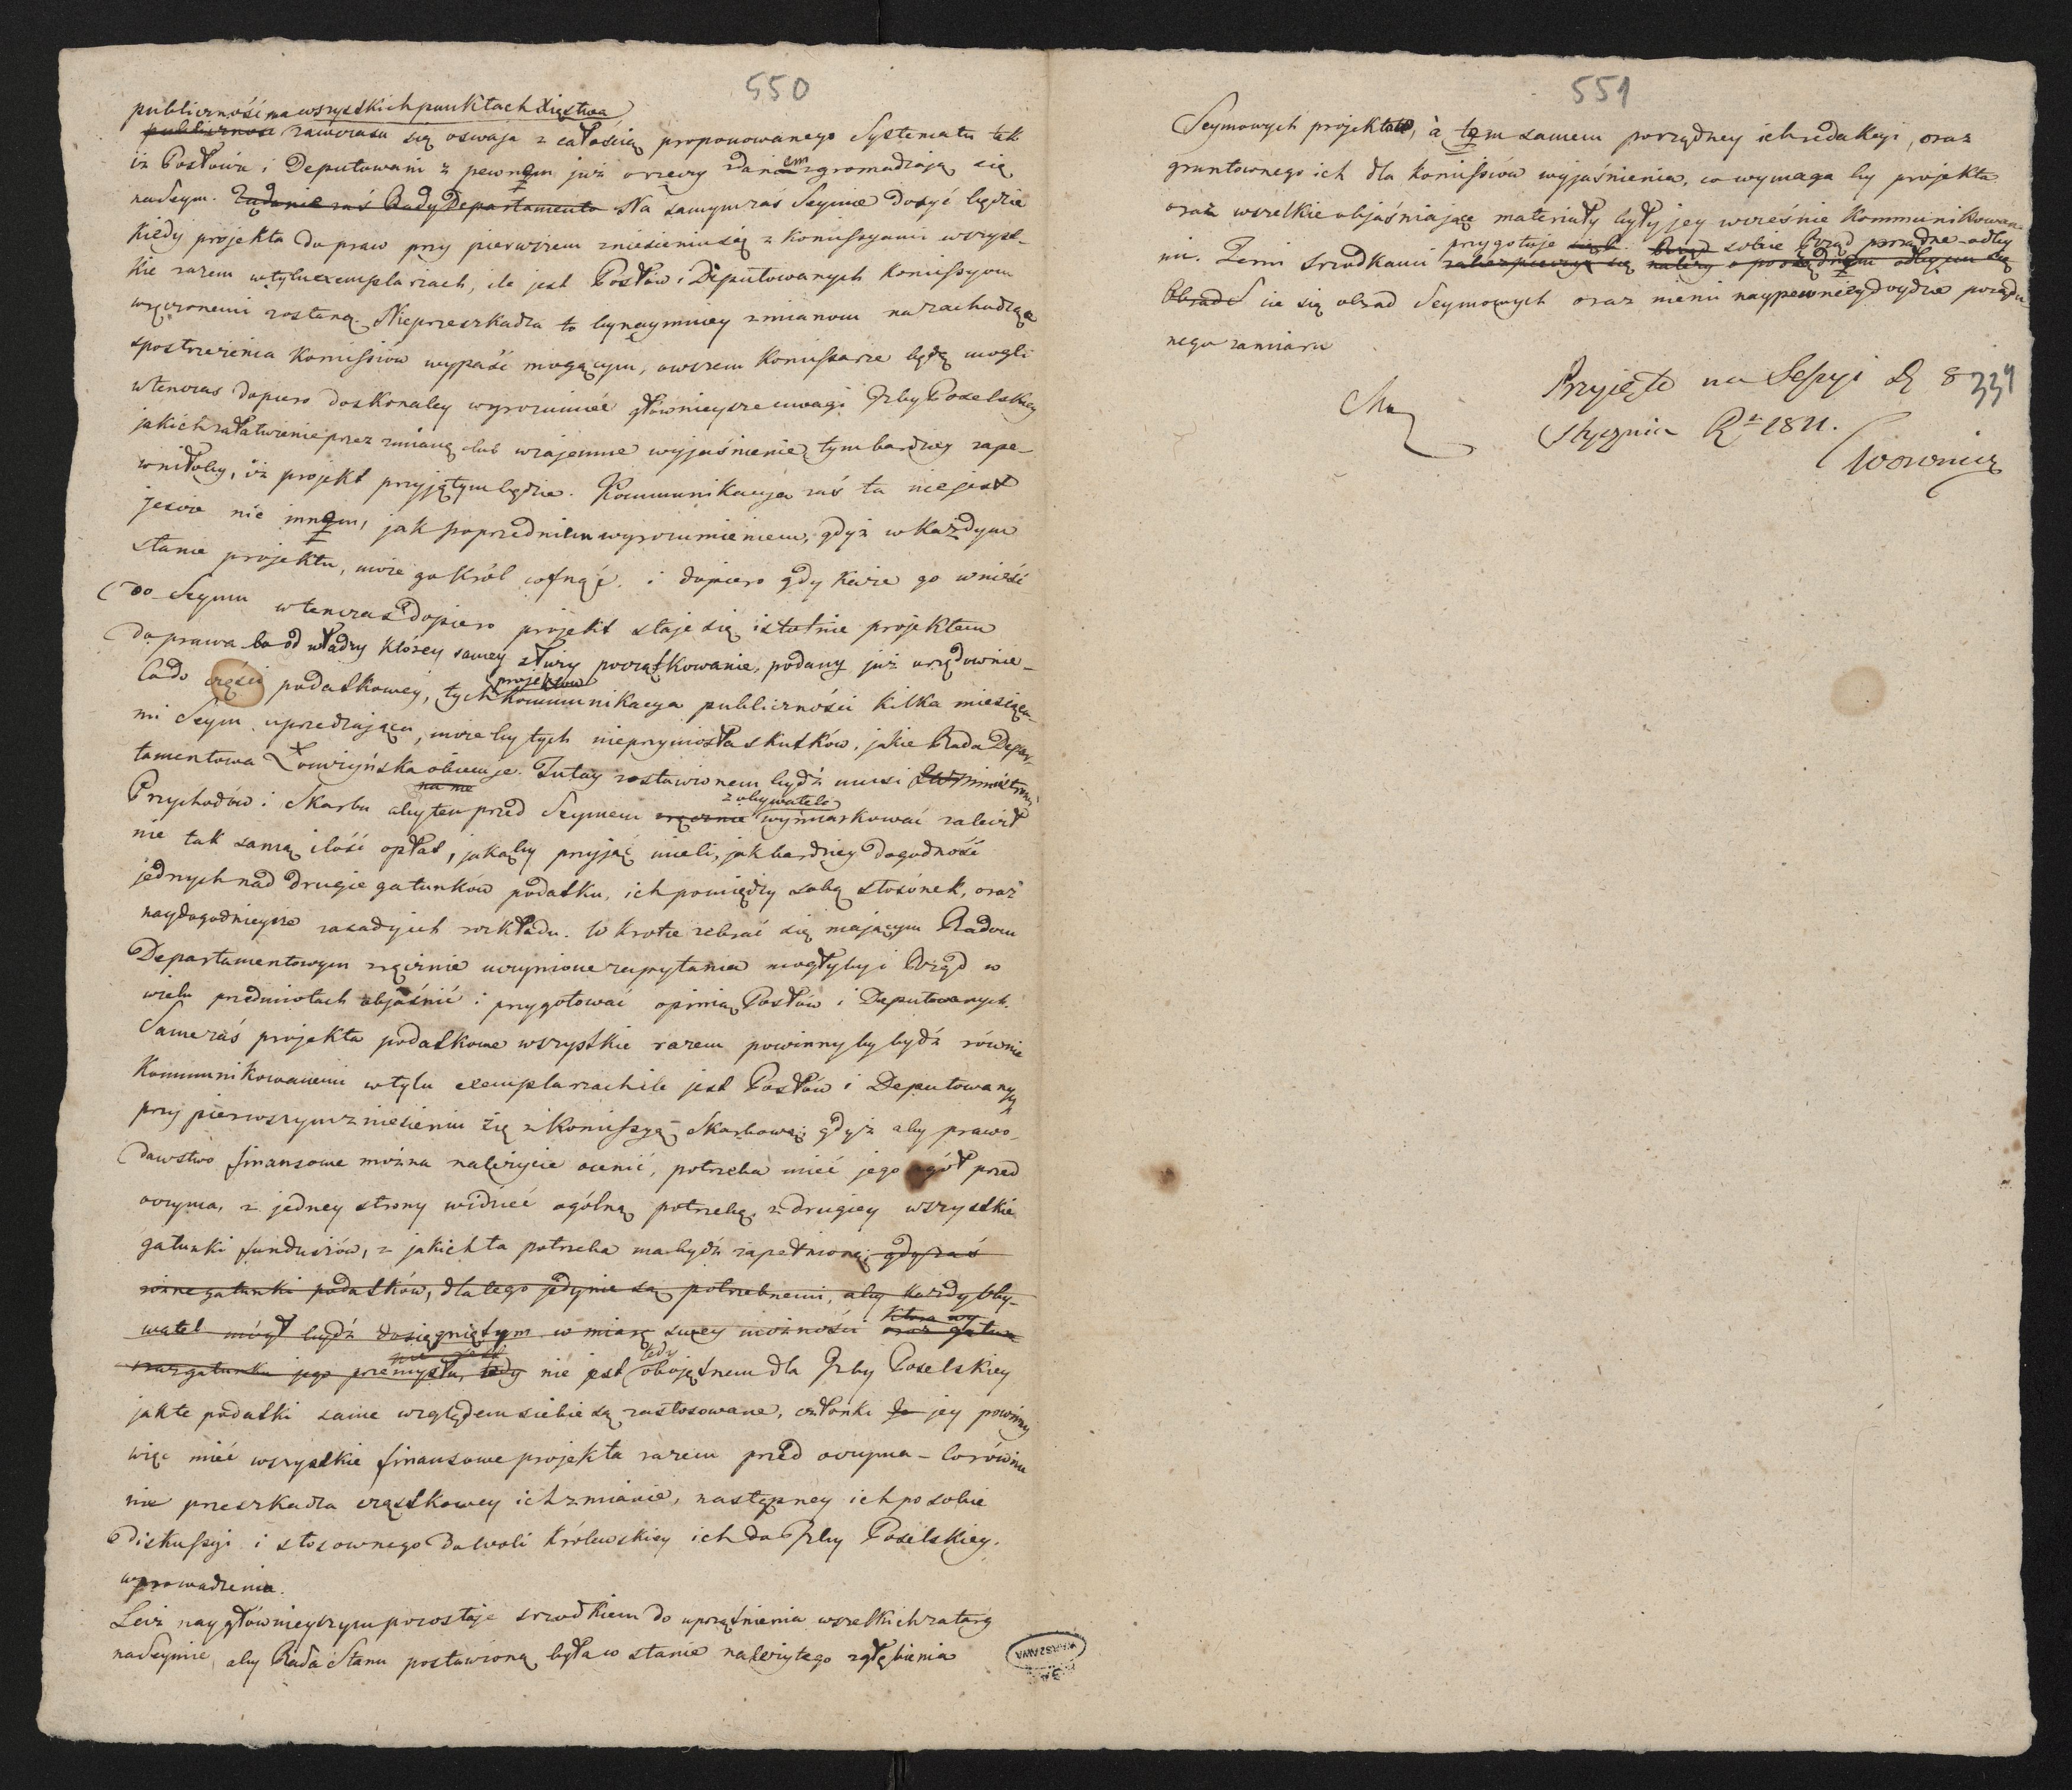 550
publiczności na wszystkich punktach Xięstwa
publiczność zawczasu się oswaja z całością proponowanego Systematu tak
iż Posłowie i Deputowani z pewnem już o rzeczy zdaniem zgromadzają się
na Seym. Żądanie zaś Rady Departamento Na samym zaś Seymie dosyć będzie
kiedy projekta do praw przy pierwszem zniesieniu się z Komissyami wszyst-
kie razem w tylu exemplarzach, ile jest Posłów i Deputowanych Komissyom
wręczonemi zostaną. Nieprzeszkadza to bynaymniey zmianom na zachodzące
spostrzeżenia Komissiów wypaść mogącym, owszem Komissarze będą mogli
wtenczas dopiero doskonaley wyrozumieć główniejsze uwagi Izby Poselskiey
jakich załatwienie przez zmianę lub wzajemne wyjaśnienie tym bardziey zape-
wniłoby, iż projekt przyjętym będzie. Kommunikacyja zaś ta nie jest
jeszcze nic innem, jak poprzedniem wyrozumieniem, gdyż w każdym
stanie projektu, może go Król cofnąć, i dopiero gdy każe go wnieść
do Seymu wtenczas dopiero projekt staje się istotnie projektem
do prawa bo od władzy którey samey służy początkowanie, podany już urzędownie-
Co do części podatkowey, tych projektów kommunikacya publiczności kilka miesięcy-
mi Seym uprzedzająca, może by tych nieprzyniosła skutków, jakie Rada Depar-
tamentowa Łomżyńska obiecuje. Tutay zostawionem bydź musi Ministrowi
Przychodów i Skarbu aby ten przed Seymem zręcznie z obywatelo wymiarkować zalecił
na nie
nie tak samą ilość opłat, jakąby przyjąć mieli, jak bardziey dogodność
jednych nad drugie gatunków podatku, ich pomiędzy sobą stosónek, oraz
naydogodnieysze zasady ich rozkładu. W krotce zebrać się mającym Radom
Departamentowym zręcznie uczynione zapytania mogłyby i Rząd w
wielu przedmiotach objaśnić i przygotować opinią Posłów i Deputowanych.
Same zaś projekta podatkowe wszystkie razem powinny by bydź równie
kommunikowanemi w tylu exemplarzach ile jest Posłów i Deputowanych
przy pierwszym zniesieniu się z Komissyą Skarbową; gdyż aby prawo-
dawstwo finansowe można należycie ocenić, potrzeba mieć jego ogół przed
oczyma, z jedney strony widzieć ogólną potrzebę, z drugiey wszystkie
gatunki funduszów, z jakich ta potrzeba ma bydź zapełnioną; gdy zaś
różne gatunki podatków, dla tego jedynie są potrzebnemi, aby każdy oby-
watel mógł bydź dosięgniętym w miarę swey możności oraz gatun
oraz gatunku jego przemysłu, tedy nie jest tedy obojętnem dla Izby Poselskiey
jak te podatki same względem siebie są zastosowane, członki jey powinny
więc mieć wszystkie finansowe projekta razem przed oczyma - Co równie
nie przeszkadza cząstkowey ich zmianie, następney ich po sobie
diskussyi i stosownego do woli Królewskiey ich do Izby Poselskiey.
wprowadzenia.
Lecz naygłównieyszym pozostaje srzodkiem do uprzątnienia wszelkich zatarg
na Seymie, aby Rada Stanu postawioną była w stanie należytego zgłębienia
WARSZAWA
551
Seymowych projektów, a tem samem porządney ich redakcyi, oraz
gruntownego ich dla Komissiów wyjaśnienia, co wymaga by projekta
oraz wszelkie objaśniające materiały były jey wcześnie kommunikowane-
mi. Temi srzodkami przygotuje sobie Rząd porządne odby
zabezpieczyć się należy o porządnem odbyciu się
Obrad cie się obrad Seymowych oraz niemi naypewniey doydzie pożąda-
nego zamiaru
Przyjęte na Sessyi d. 8
Stycznia Rn 1811.
334